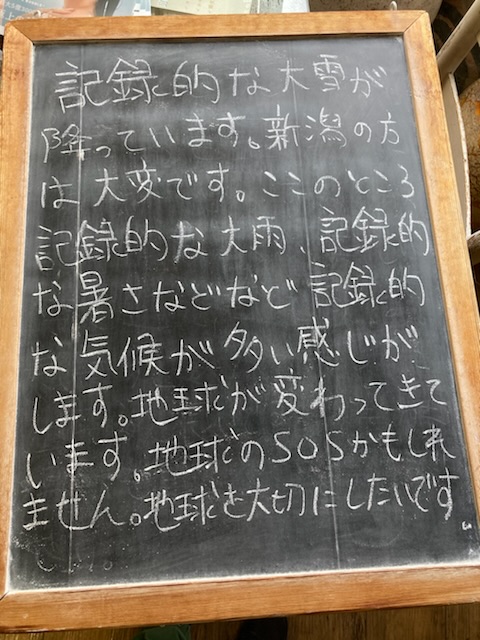 記録的な大雪が
降っています。新潟の方
は大変です。ここのところ
記録的な大雨、記録的
な暑さなどなど記録的
な気候が多い感じが
します。地球が変わってきて
います。地球のSOSかもしれ
ません。地球を大切にしたいです。